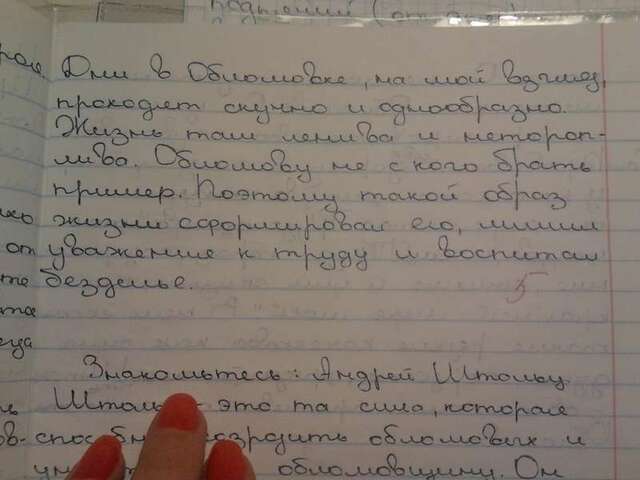 Дни в Обломовке, на мой взгляд,
проходят скучно и однообразно.
Жизнь там ленива и нетороп-
лива. Обломову не с кого брать
пример. Поэтому такой образ
жизни сформировал его, лишил
от уважение к труду и воспитал
безделье.
5
Знакомьтесь: Андрей Штольц
Штольц - это та сила, которая
способна возродить обломовых и
обломовщину. Он